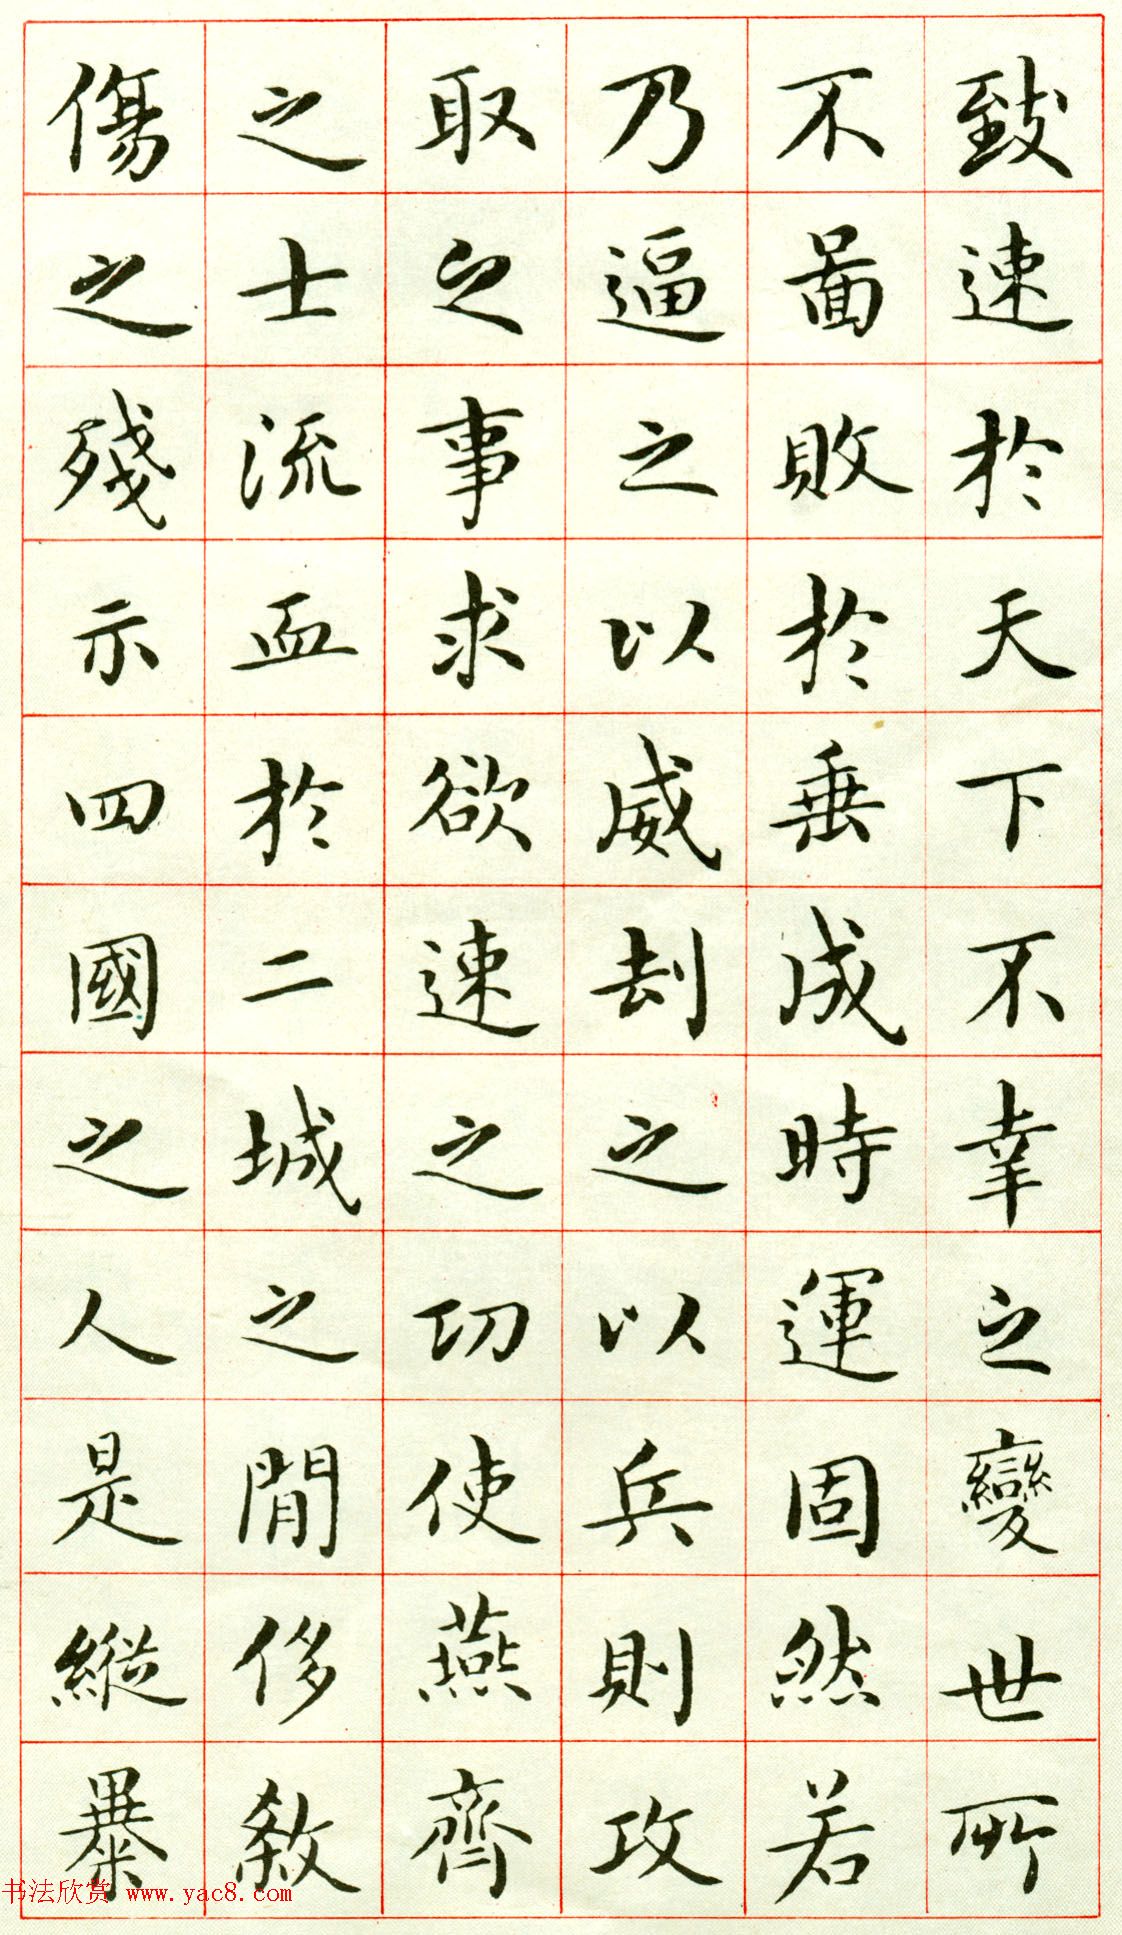 致速於天下不幸之變世所
不圖敗於垂成時運固然若
乃逼之以威刦之以兵則攻
取之事求欲速之功使燕齊
之士流血於二城之閒侈殺
傷之殘示四國之人是縱暴
书法欣赏 www.yac8.com